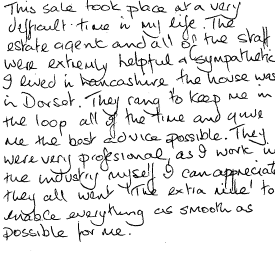 This sale took place at a very
difficult time in my life. The
estate agent and all of the staff
were extremly helpful & sympathetic
I lived in Lancashire the house was
in Dorset. They rang to keep me in
the loop all of the time and gave
me the best advice possible. They
were very profesional, as I work in
the industry myself I can appreciate
they all went 'The extra mile' to
enable everything as smooth as
possible for me.